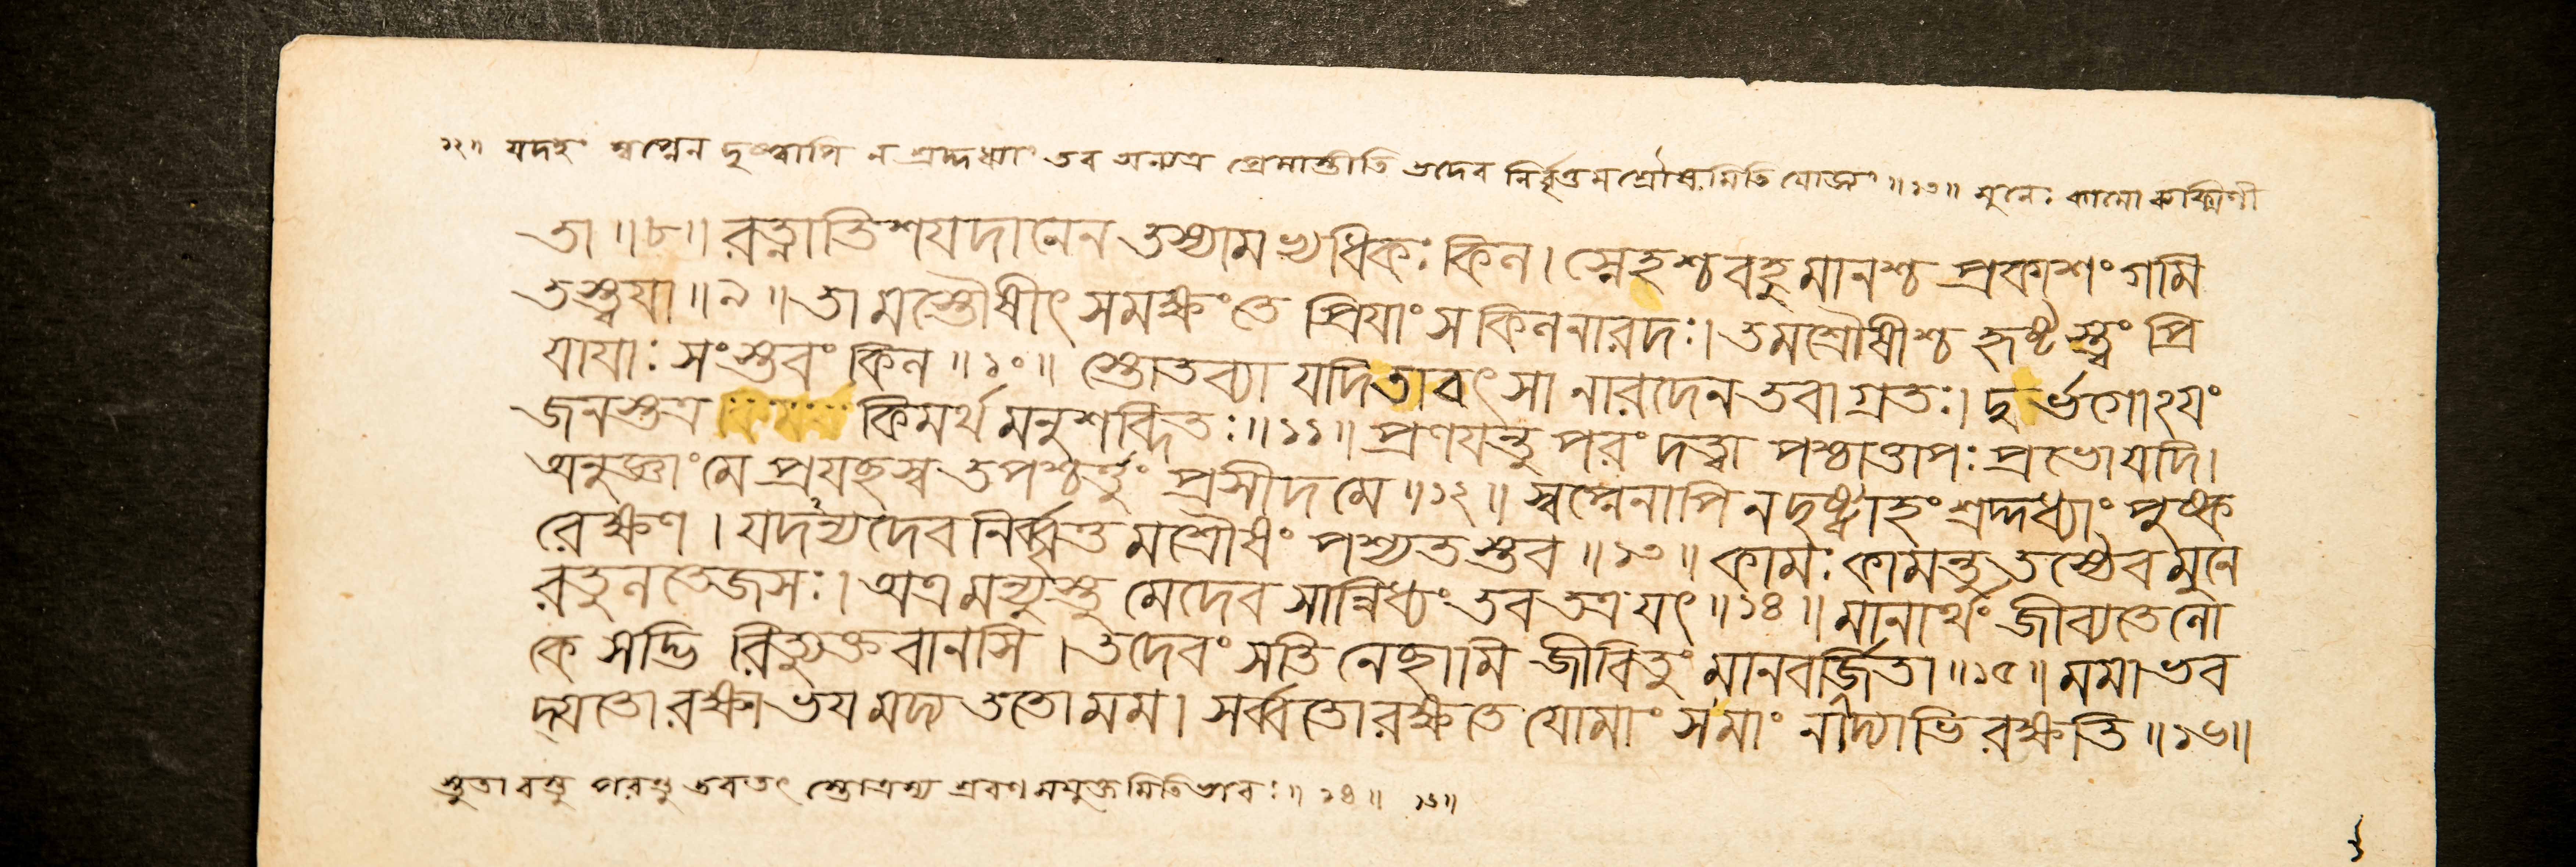 ১২॥ যদহং স্বপ্নেন দৃষ্ট্বাপি ন শ্রদ্দধ্যাং তব অন্যত্র প্রেমাস্তীতি তদেব নির্বৃত্তমশ্রৌষমিতি যোজ্যং ॥১৩॥ মুনেঃ কামো রুক্মিণী
তা ॥৮॥ রত্নাতিশযদানেন তস্যামপ্যধিকঃ কিল। স্নেহশ্চ বহুমানশ্চ প্রকাশং গমি
তস্ত্বযা ॥৯॥ তামস্তৌষীৎ সমক্ষং তে প্রিযাং স কিল নারদঃ। তমশ্রৌষীশ্চ হৃষ্টস্ত্বং প্রি
যাযাঃ সংস্তবং কিল ॥১০॥ স্তোতব্যা যদি তাবৎ সা নারদেন তবাগ্রতঃ। দুর্ভগোঽযং
জনস্তত্র কিমর্থমনুশব্দিতঃ ॥১১॥ প্রণযন্তু পরং দত্ত্বা পশ্চাত্তাপঃ প্রভো যদি।
অনুজ্ঞাং মে প্রযচ্ছস্ব তপশ্চর্ত্তুং প্রসীদ মে ॥১২॥ স্বপ্নেনাপি ন দৃষ্ট্বাহং শ্রদ্দধ্যাং পুষ্ক
রেক্ষণ। যদন্যদেব নির্ব্বৃত্তমশ্রৌষং পশ্যতস্তব ॥১৩॥ কামঃ কামন্তু তস্যৈব মুনে
রতুলতেজসঃ। অত্র মন্যুস্তু মে দেব সান্নিধ্যং তব তত্র যৎ ॥১৪॥ মানার্থং জীব্যতে লো
কে সদ্ভিরিত্যুক্তবানসি। তদেবং সতি নেচ্ছামি জীবিতুং মানবর্জিতা ॥১৫॥ মমাভব
দ্যতো রক্ষা ভযমদ্য ততো মম। সর্ব্বতো রক্ষতে যো মাং স মাং নাদ্যাভিরক্ষতি ॥১৬॥
স্তুতাবস্তু পরন্তু তব তৎ স্তোত্রস্য শ্রবণমযুক্তমিতি ভাবঃ ॥ ১৪॥ ১৫॥